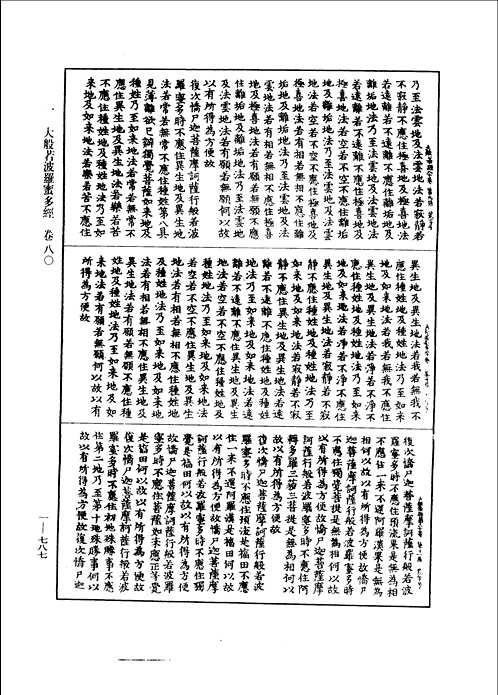 乃至法雲地及法雲地法若寂靜若
不寂靜不應住極喜地及極喜地法
若遠離若不遠離不應住離垢地及
離垢地法乃至法雲地及法雲地法
若遠離若不遠離不應住極喜地及
極喜地法若空若不空不應住離垢
地及離垢地法乃至法雲地及法雲
地法若空若不空不應住極喜地及
極喜地法若有相若無相不應住離
垢地及離垢地法乃至法雲地及法
雲地法若有相若無相不應住極喜
地及極喜地法若有願若無願不應
住離垢地及離垢地法乃至法雲地
及法雲地法若有願若無願何以故
以有所得為方便故
復次憍尸迦菩薩摩訶薩行般若波
羅蜜多時不應住異生地及異生地
法若常若無常不應住種姓第八具
見薄離欲已辦獨覺菩薩如來地及
種姓乃至如來地法若常若無常不
應住異生地及異生地法若樂若苦
不應住種姓地及種姓地法乃至如
來地及如來地法若樂若苦不應住
異生地及異生地法若我若無我不
應住種姓地及種姓地法乃至如來
地及如來地法若我若無我不應住
異生地及異生地法若淨若不淨不
應住種姓地及種姓地法乃至如來
地及如來地法若淨若不淨不應住
異生地及異生地法若寂靜若不寂
靜不應住種姓地及種姓地法乃至
如來地及如來地法若寂靜若不寂
靜不應住異生地及異生地法若遠
離若不遠離不應住種姓地及種姓
地法乃至如來地及如來地法若遠
離若不遠離不應住異生地及異生
地法若空若不空不應住種姓地及
種姓地法乃至如來地及如來地法
若空若不空不應住異生地及異生
地法若有相若無相不應住種姓地
及種姓地法乃至如來地及如來地
法若有相若無相不應住異生地及
異生地法若有願若無願不應住種
姓地及種姓地法乃至如來地及如
來地法若有願若無願何以故以有
所得為方便故
復次憍尸迦菩薩摩訶薩行般若波
羅蜜多時不應住預流果是無為相
不應住一來不還阿羅漢果是無為
相何以故以有所得為方便故憍尸
迦菩薩摩訶薩行般若波羅蜜多時
不應住獨覺菩提是無為相何以故
以有所得為方便故憍尸迦菩薩摩
訶薩行般若波羅蜜多時不應住阿
耨多羅三藐三菩提是無為相何以
故以有所得為方便故
復次憍尸迦菩薩摩訶薩行般若波
羅蜜多時不應住預流是福田不應
住一來不還阿羅漢是福田何以故
以有所得為方便故憍尸迦菩薩摩
訶薩行般若波羅蜜多時不應住獨
覺是福田何以故以有所得為方便
故憍尸迦菩薩摩訶薩行般若波羅
蜜多時不應住菩薩如來應正等覺
是福田何以故以有所得為方便故
復次憍尸迦菩薩摩訶薩行般若波
羅蜜多時不應住初地殊勝事不應
住第二地乃至第十地殊勝事何以
故以有所得為方便故復次憍尸迦
大般若波羅蜜多經 卷八〇
一—七八七